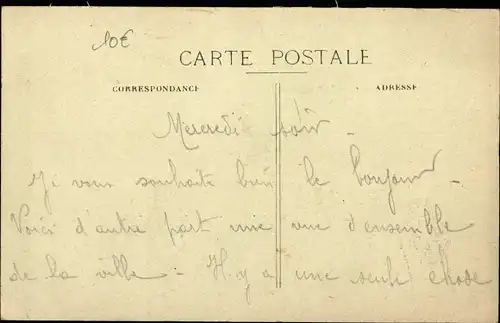 10€
CARTE POSTALE
CORRESPONDANCE
ADRESSE
Mercredi soir -
Je vous souhaite bien le bonjour -
Voici d'autre part une vue d'ensemble
de la ville - Il y a une seule chose